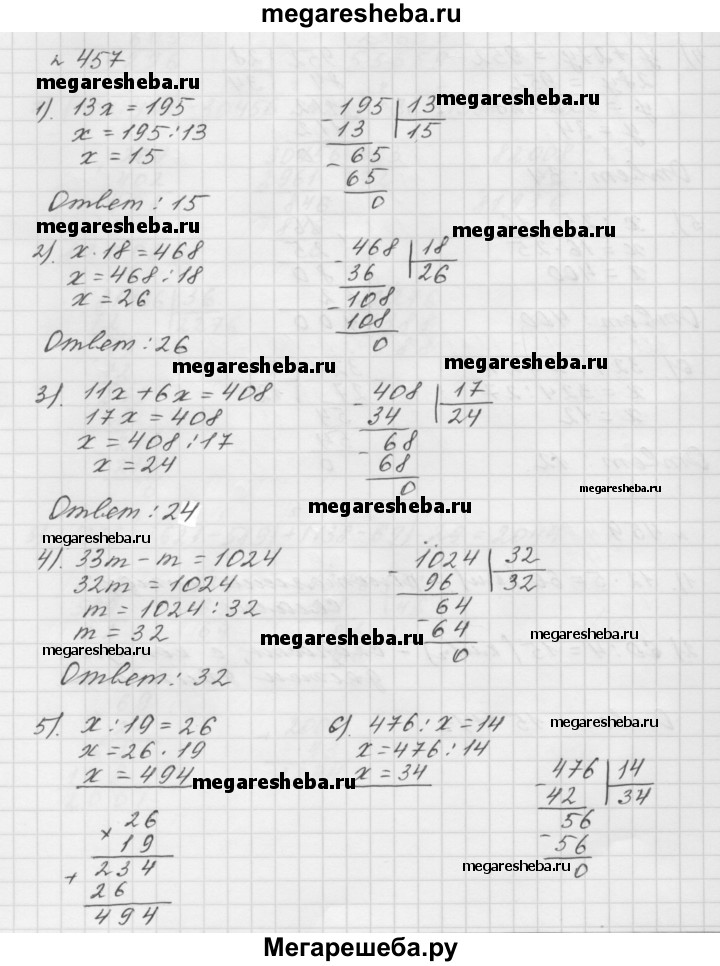 megaresheba.ru
№ 457
megaresheba.ru
1). 13x = 195
x = 195 : 13
x = 15
195 | 13
13 | 15
65
65
0
megaresheba.ru
Ответ : 15
megaresheba.ru
megaresheba.ru
2). x · 18 = 468
x = 468 : 18
x = 26
468 | 18
36 | 26
108
108
0
Ответ : 26
megaresheba.ru
megaresheba.ru
3). 11x + 6x = 408
17x = 408
x = 408 : 17
x = 24
408 | 17
34 | 24
68
68
0
megaresheba.ru
Ответ : 24
megaresheba.ru
megaresheba.ru
4). 33m − m = 1024
32m = 1024
m = 1024 : 32
m = 32
1024 | 32
96 | 32
64
64
0
megaresheba.ru
megaresheba.ru
megaresheba.ru
Ответ : 32
5). x : 19 = 26
x = 26 · 19
x = 494
megaresheba.ru
× 26
19
+ 234
26
494
6). 476 : x = 14
x = 476 : 14
x = 34
megaresheba.ru
476 | 14
42 | 34
56
56
0
megaresheba.ru
Мегарешеба.ру